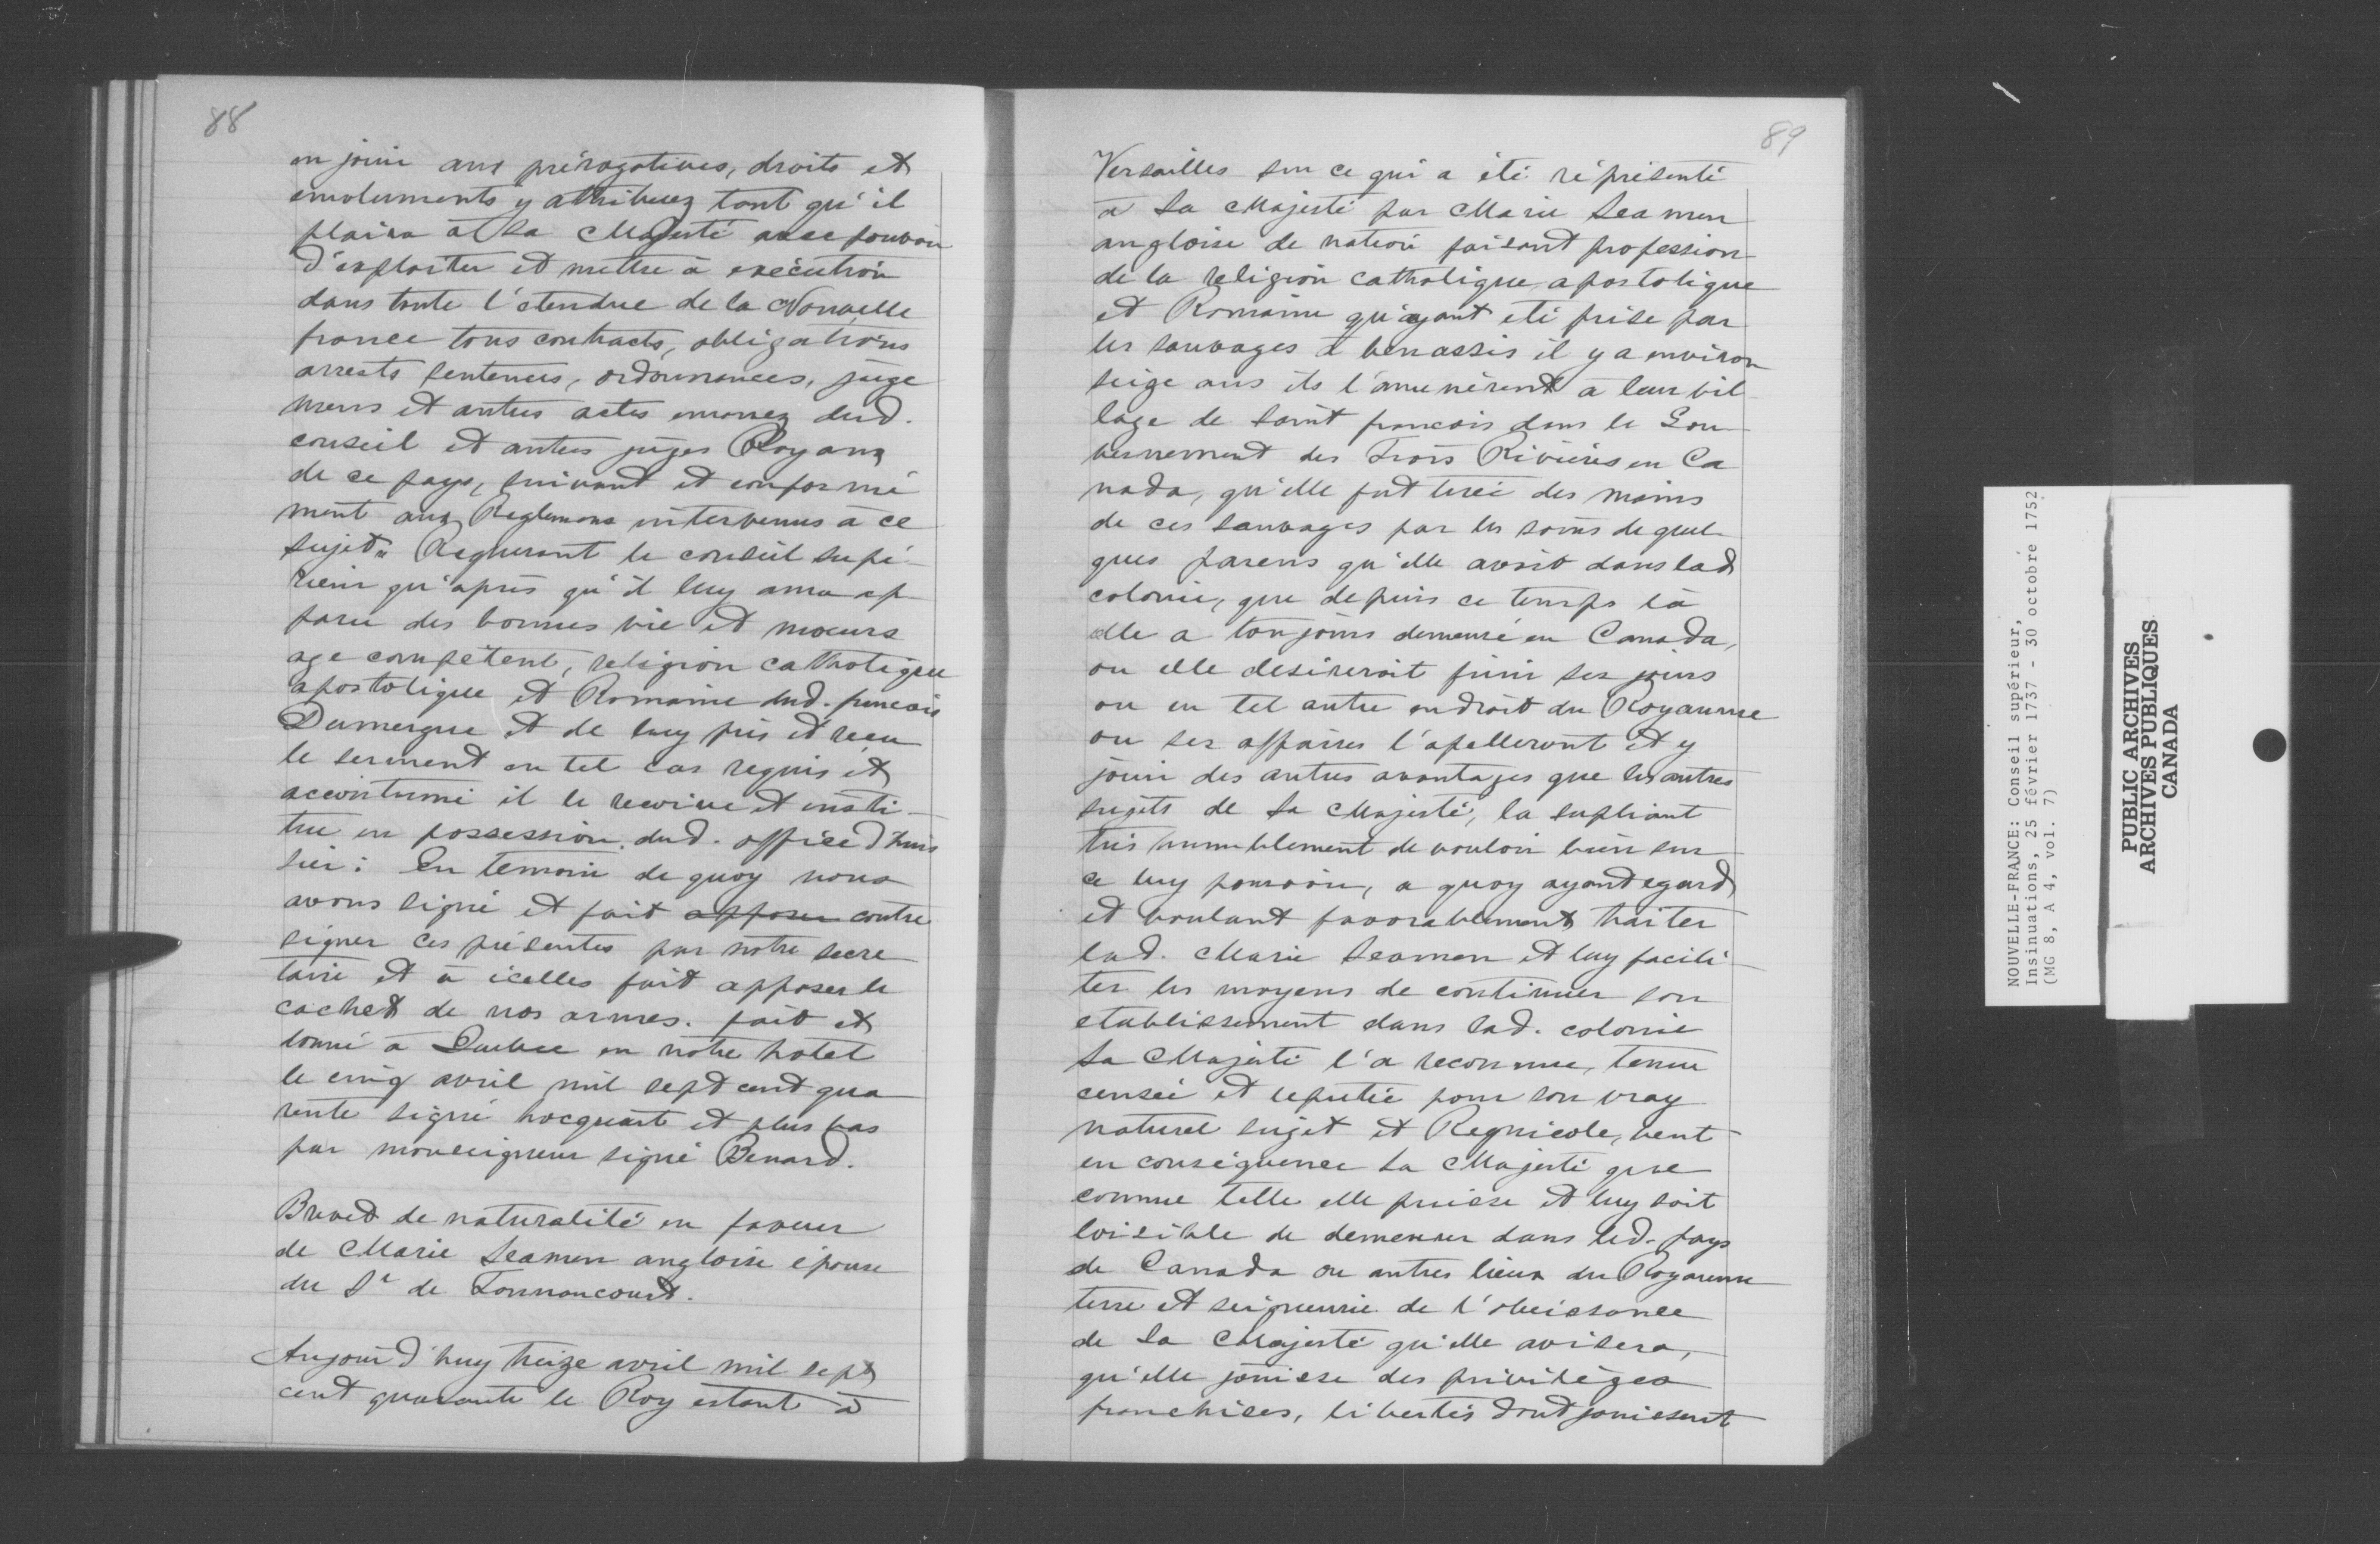 88
en jouir aux prérogatives, droits et
emoluments y attribuez tant qu'il
plaira à Sa Majesté avec pouvoir
d'exploiter et mettre à exécution
dans toute l'etendue de la Nouvelle
france tous contracts, obligations
arrests sentences, ordonnances, juge
mens et autres actes emanez dud.
conseil et autres juges Royaux
de ce pays, suivant et conformé
ment aux Reglemens intervenus à ce
sujet. Requerant le conseil supé-
rieur qu'après qu'il luy aura ap
paru des bonnes vie et moeurs
age compétent, religion catholique
apostolique et Romaine dud. francois
Dumergue et de luy pris et reçu
le serment en tel cas requis et
accoutumé il le recoive et insti-
tue en possession dud. office d'huis
sier: En temoin de quoy nous
avons signé et fait apposer contre
signer ces présentes par notre secre
taire et à icelles fait apposer le
cachet de nos armes. fait et
donné à Quebec en notre hotel
le cinq avril mil sept cent qua
rante signé hocquart et plus bas
par monseigneur signé Benard.
Brevet de naturalité en faveur
de Marie Seamen angloise épouse
du Sr de Tonnancourt.
Aujourd'huy treize avril mil sept
cent quarante le Roy estant à
89
Versailles sur ce qui a été réprésenté
à Sa Majesté par Marie Seamen
angloise de nation faisant profession
de la religion catholique, apostolique
et Romaine qu'ayant eté prise par
les sauvages à il y a environ
seize ans ils l'amenèrent à leur vil
lage de saint francois dans le Gou
vernement des Trois Rivières en Ca
nada, qu'elle fut tirée des mains
de ces sauvages par les soins de quel
ques parens qu'elle avoit dans lad
colonie, que depuis ce temps là
elle a toujours demeuré en Canada,
ou elle desireroit finir ses jours
ou en tel autre endroit du Royaume
ou ses affaires l'apelleront et y
jouir des autres avantages que les autres
sujets de Sa Majesté, la supliant
très humblement de vouloir bien sur
ce luy pourvoir, a quoy ayant egard
et voulant favorablement traiter
lad. Marie Seamen et luy facili-
ter les moyens de continuer son
etablissement dans lad. colonie
Sa Majesté l'a reconnue, tenue
censée et reputée pour son vray
naturel sujet et Regnicole, veut
en conséquence Sa Majesté que
comme telle elle puisse et luy soit
loisible de demeurer dans led. pays
de Canada ou autres lieux du Royaume
terre et seigneurie de l'obeissance
de Sa Majesté qu'elle avisera,
qu'elle jouisse des privilèges
franchises, libertés dont jouissent
NOUVELLE-FRANCE: Conseil supérieur,
Insinuations, 25 février 1737 - 30 octobre 1752
(MG 8, A 4, vol. 7)
PUBLIC ARCHIVES
ARCHIVES PUBLIQUES
CANADA